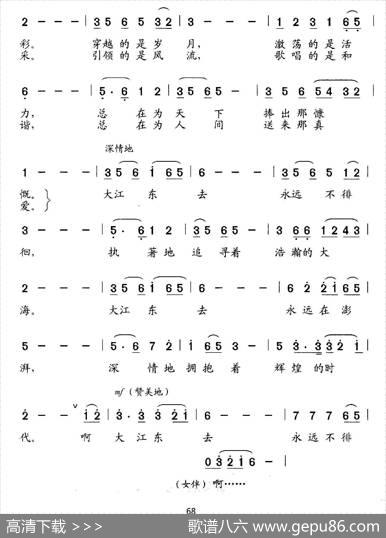 2 - - - | 3 5 6 5 3 2 | 3 - - - | 1 2 3 1 6 5 |
彩。 穿越的是岁 月， 激荡的是活
采。 引领的是风 流， 歌唱的是和
6 - - - | 5· 6 1 2 | 3 2 1 6· | 3 5 6 5 4 3 2 |
力， 总 在为天 下 捧出那慷
谐， 总 在为人 间 送来那真
深情地
1 - - - | 3 5 6 1 6 5 | 6 - - - | 3 5 6 5 1 2 |
慨。 大江 东 去 永远 不 徘
爱。
3 - - - | 5· 6 1 2 | 3 5 6 | 3 6 1 1 2 4 3 |
徊， 执 著地 追 寻着 浩瀚的大
2 - - - | 3 5 6 1 6 5 | 6 - - - | 6 2 2 1 6 5 |
海。 大江 东 去 永远在 澎
5 - - - | 5· 6 7 2 | 1 6 3 5 | 5 3· 3 3 2 1 |
湃， 深 情地 拥抱着 辉煌的时
mf（赞美地）
2 - - ∨ 1 2 | 3· 3 3 2 1 | 6 - - - | 7 7 7 6 5 |
代。 啊 大江 东 去 永远不徘
0 3 2 1 6 - |
（女伴）啊……
68
高清下载 >>> 歌谱八六 www.gepu86.com